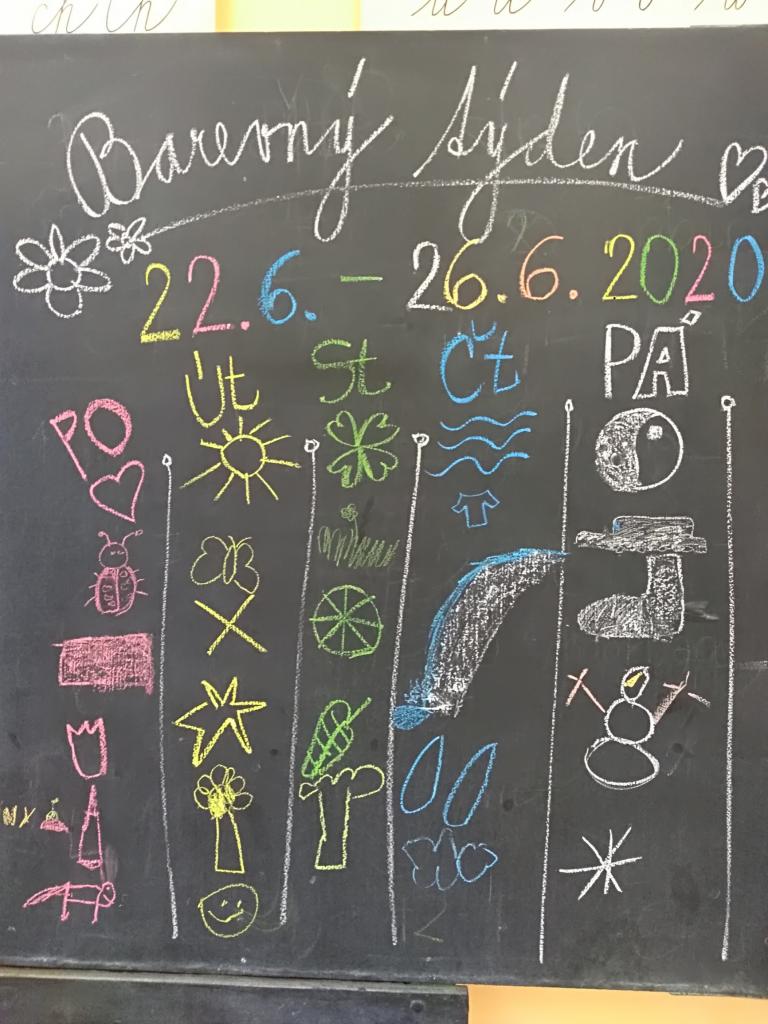 ch Ch
Barevný týden
22.6. – 26.6. 2020
PO Út St Čt PÁ